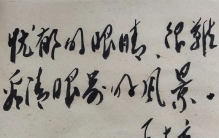 忧郁的眼睛，很难
看清眼前的风景。